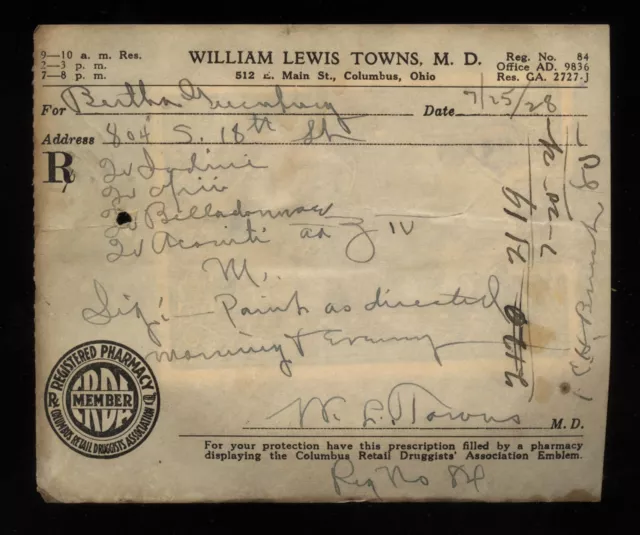 9–10 a. m. Res.
2–3 p. m.
7–8 p. m.
WILLIAM LEWIS TOWNS, M. D.
512 E. Main St., Columbus, Ohio
Reg. No. 84
Office AD. 9836
Res. CA. 2727-J
For Bertha Greenburg Date 7/25/28
Address 804 S. 18th St
R
Iodine
Opii
Belladonnae
Aconiti aa ʒ IV
M.
Sig:— Paint as directed
morning & Evening
W. L. Towns M. D.
REGISTERED PHARMACY
CRDA
MEMBER
COLUMBUS RETAIL DRUGGISTS ASSOCIATION
For your protection have this prescription filled by a pharmacy
displaying the Columbus Retail Druggists' Association Emblem.
Reg No 84